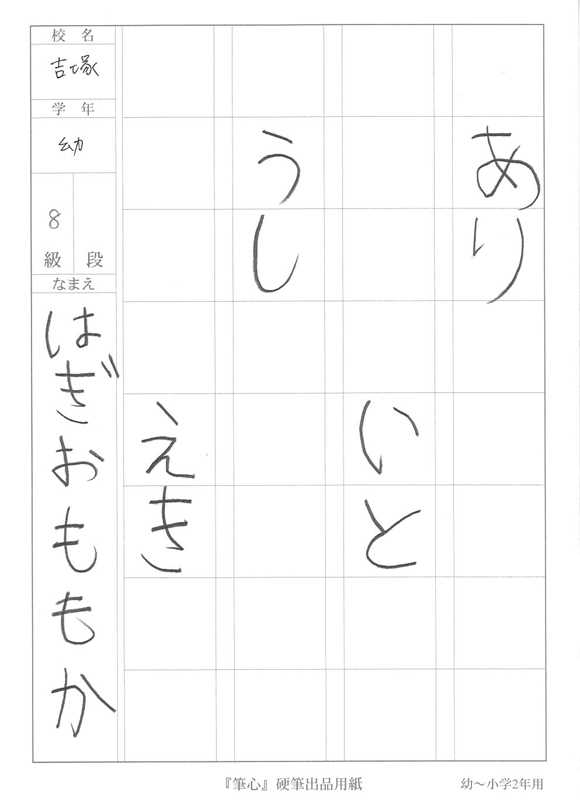 あり
いと
うし
えき
校名
吉塚
学年
幼
8
級 段
なまえ
はぎおももか
『筆心』硬筆出品用紙
幼～小学2年用